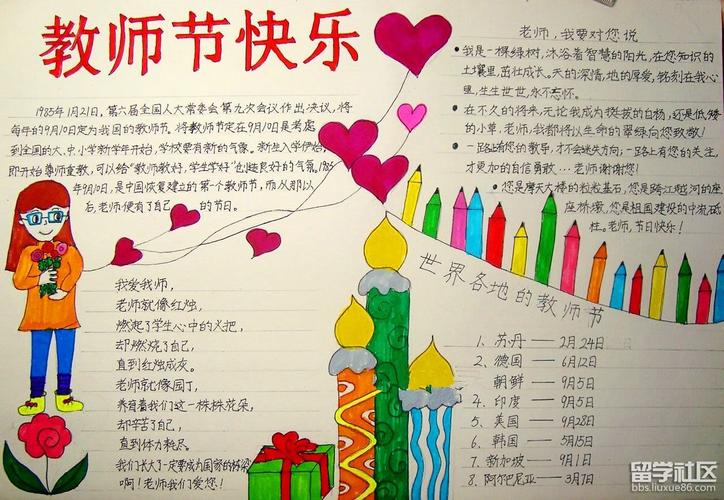 教师节快乐
1985年1月21日,第六届全国人大常委会第九次会议作出决议,将
每年的9月10日定为我国的教师节。将教师节定在9月10日是考虑
到全国的大、中、小学新学年开始,学校要有新的气象。新生入学伊始,
即开始尊师重教,可以给"教师教好,学生学好"创造良好的气氛。1985
年9月10日,是中国恢复建立的第一个教师节,而从那以
后,老师便有了自己的节日。
我爱我师,
老师就像红烛,
燃起了学生心中的火把,
却燃烧了自己,
直到红烛成灰。
老师就像园丁,
养育着我们这一株株花朵,
却辛苦了自己,
直到体力耗尽。
我们长大了一定要成为国家的栋梁
啊!老师我们爱您!
老师,我要对您说
我是一棵绿树,沐浴着智慧的阳光,在您知识的
土壤里,茁壮成长。天的深情,地的厚爱,铭刻在我心
里,生生世世,永不忘怀。
在不久的将来,无论我成为挺拔的白杨,还是低矮
的小草,老师,我都将以生命的翠绿向您致敬!
一路上有您的教导,才不会迷失方向;一路上有您的关注,
才更加的自信勇敢...老师谢谢您!
您是摩天大楼的粒粒基石,您是跨江越河的座
座桥墩,您是祖国建设的中流砥
柱。老师,节日快乐!
世界各地的教师节
1、苏丹——2月24日
2、德国——6月12日
朝鲜——9月5日
4、印度——9月5日
5、美国——9月28日
6、韩国——5月15日
7、新加坡——9月1日
8、阿尔巴尼亚——3月7日
留学社区
bbs.liuxue86.com